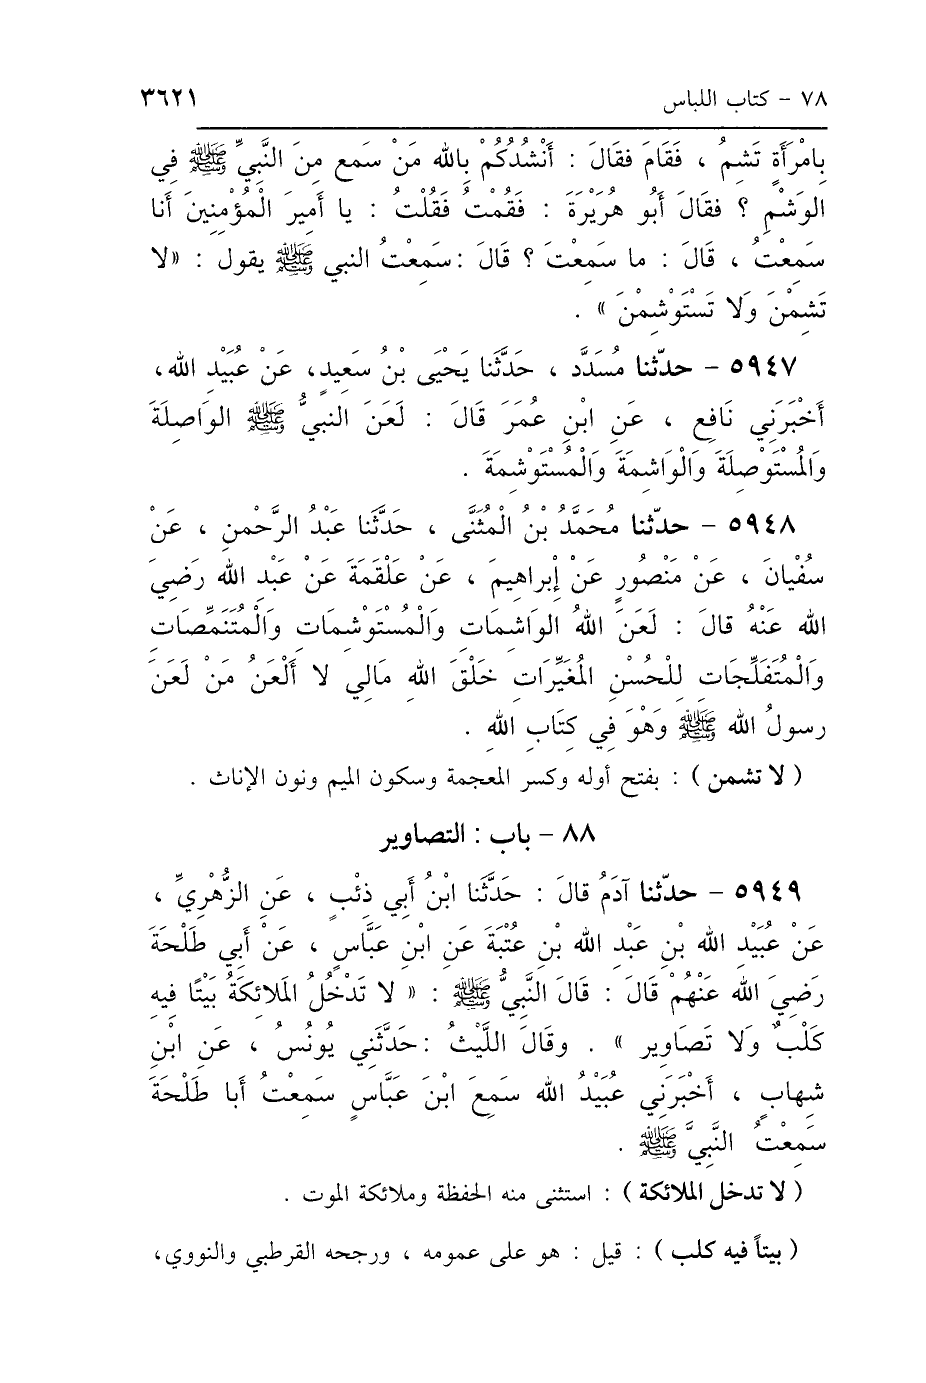 ٧٨ - كتاب اللباس ٣٦٢١
بِامْرَأَةٍ تَشِمُ ، فَقَامَ فَقَالَ : أَنْشُدُكُمْ بِالله مَنْ سَمِع مِنَ النَّبِيِّ ﷺ فِي
الوَشْمِ ؟ فقَالَ أَبُو هُرَيْرَةَ : فَقُمْتُ فَقُلْتُ : يا أَمِيرَ الْمُؤْمِنِينَ أَنا
سَمِعْتُ ، قَالَ : ما سَمِعْتَ ؟ قَالَ : سَمِعْتُ النبي ﷺ يقول : «لا
تَشِمْنَ وَلا تَسْتَوْشِمْنَ » .
٥٩٤٧ - حدّثنا مُسَدَّد ، حَدَّثَنا يَحْيَى بْنُ سَعِيدٍ، عَنْ عُبَيْدِ الله،
أَخْبَرَنِي نَافِع ، عَنِ ابْنِ عُمَرَ قَالَ : لَعَنَ النبيُّ ﷺ الوَاصِلَةَ
وَالمُسْتَوْصِلَةَ وَالْوَاشِمَةَ وَالْمُسْتَوْشِمَةَ .
٥٩٤٨ - حدّثنا مُحَمَّدُ بْنُ الْمُثَنَّى ، حَدَّثَنا عَبْدُ الرَّحْمنِ ، عَنْ
سُفْيانَ ، عَنْ مَنْصُورٍ عَنْ إِبراهِيمَ ، عَنْ عَلْقَمَةَ عَنْ عَبْدِ الله رَضِيَ
الله عَنْهُ قالَ : لَعَنَ اللهُ الوَاشِمَاتِ وَالْمُسْتَوْشِمَاتِ وَالْمُتَنَمِّصَاتِ
وَالْمُتَفَلِّجَاتِ لِلْحُسْنِ المُغَيِّرَاتِ خَلْقَ اللهِ مَالِي لا أَلْعَنُ مَنْ لَعَنَ
رسولُ الله ﷺ وَهْوَ فِي كِتَابِ اللهِ .
( لا تشمن ) : بفتح أوله وكسر المعجمة وسكون الميم ونون الإناث .
٨٨ - باب : التصاوير
٥٩٤٩ - حدّثنا آدَمُ قالَ : حَدَّثَنا ابْنُ أَبِي ذِئْبٍ ، عَنِ الزُّهْرِيِّ ،
عَنْ عُبَيْدِ الله بْنِ عَبْدِ الله بْنِ عُتْبَةَ عَنِ ابْنِ عَبَّاسٍ ، عَنْ أَبِي طَلْحَةَ
رَضِيَ الله عَنْهُمْ قَالَ : قَالَ النَّبِيُّ ﷺ : « لا تَدْخُلُ المَلائِكَةُ بَيْتًا فِيهِ
كَلْبٌ وَلا تَصَاوِير » . وقَالَ اللَّيْثُ : حَدَّثَنِي يُونُسُ ، عَنِ ابْنِ
شِهابٍ ، أَخْبَرَنِي عُبَيْدُ الله سَمِعَ ابْنَ عَبَّاسٍ سَمِعْتُ أَبا طَلْحَةَ
سَمِعْتُ النَّبِيَّ ﷺ .
( لا تدخل الملائكة ) : استثنى منه الحفظة وملائكة الموت .
( بيتاً فيه كلب ) : قيل : هو على عمومه ، ورجحه القرطبي والنووي،